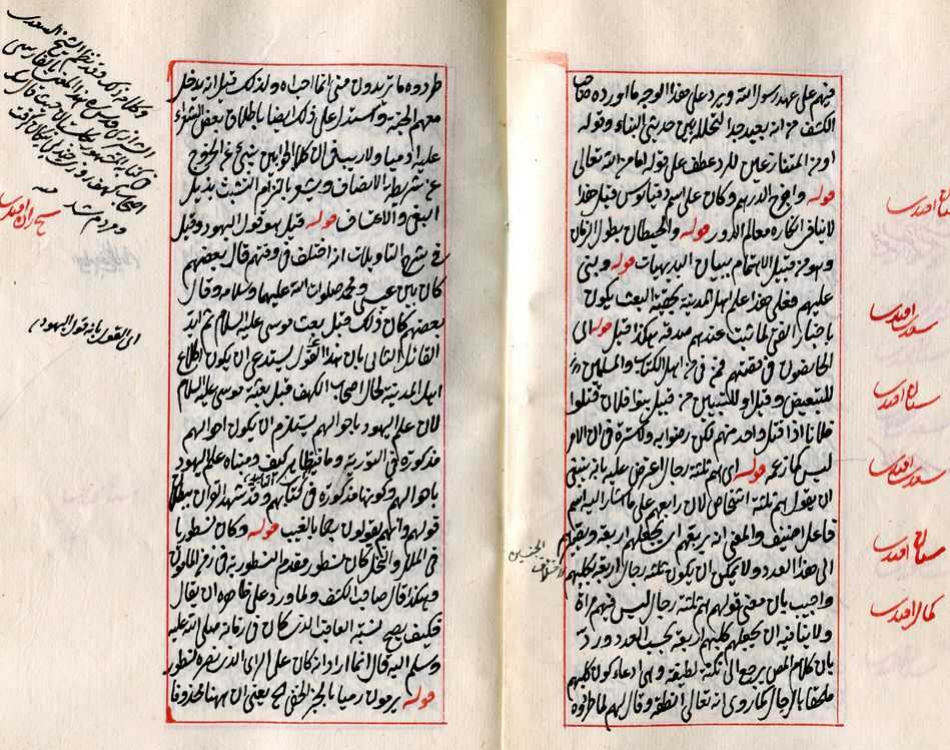 فيهم على عهد رسول الله ويرد على هذا الوجه ما اورده صاحب
الكشف من انه بعيد جدا لتخلله بين حديثي البناء وقوله
او من المتنازعين للرد عطف على قوله اما من الله تعالى
قوله واخرج الدرهم وكان على اسم دقيانوس قيل هذا
لا ينافي انكاره معالم الدور قوله والحيطان بطول الزمان
وهو من قبيل الاهتمام ببيان البديهيات قوله وبنى
عليهم فعلى هذا علم اهل المدينة بحقية البعث يكون
باخبار الفتى لما ثبت عندهم صدقه هكذا قيل قوله اى
الخايضون فى قصتهم فمن فى من اهل الكتاب والمسلمين
للتبعيض وقيل او للتبيين من قبيل بنوا فلان قتلوا
فلانا اذا قتل واحد منهم لكن رضوا به ولا سترة فى ان الامر
ليس كما زعمه قوله اى هم ثلثة رجال اعترض عليه بانه ينبغى
ان يقول هم ثلثة اشخاص لان رابعهم على ما اشار اليه اسم
فاعل اضيف والمعنى انه يربعهم اى يجعلهم اربعة ويضمهم
الى هذا العدد ولا يمكن ان يكون ثلثة رجال اربعة بكلبهم
واجيب بان معنى قولهم هم ثلثة رجال ليس فيهم مرأة
ولا ينافيه ان يجعلهم كلبهم اربعة بحسب العدد ورد
بان كلام المص يرجع الى نكتة لطيفة وهى ادعاء كون كلبهم
ملحقا بالرجال كما روى انه تعالى انطقه وقال لهم لما طردوه
سنان افندى
سعدى افندى
سنان افندى
سعدى افندى
سنان افندى
كمال افندى
لاختلاف الجنسين
طردوه ما تريدون منى انا احب احباء الله ولذلك قيل انه يدخل
معهم الجنة واستدل على ذلك ايضا باطلاق بعض الشعراء
عليه ادميا ولا ريب فى ان كلا الجوابين ينبئ عن الخروج
عن شريطة الانصاف ويشعر بالتزام التشبث بذيل
البغى والاعتساف قوله قيل هو قول اليهود وقيل
فى شرح التاويلات انه اختلف فى وقتهم قال بعضهم
كان بين عيسى ومحمد صلوات الله عليهما وسلامه وقال
بعضهم كان ذلك قبل بعث موسى عليه السلام ثم ايد
القائل الثانى بان هذا القول يستدعى ان يكون اطلاع
اهل المدينة لحال اصحاب الكهف قبل بعثة موسى عليه السلام
لان علم اليهود باحوالهم يستلزم ان يكون احوالهم
مذكورة فى التورية وما فيه ظاهر كيف ومبناه علم اليهود
باحوالهم وكونها مذكورة فى كتابهم وقد شهد القران ببطلان
قولهم وانهم يقولون رجما بالغيب قوله وكان نسطوريا
فى الملل والنحل كان نسطور مقدم النسطورية فى زمن المامون
وهكذا قال صاحب الكشف ولما ورد على ظاهره ان يقال
فكيف يصح نسبة العاقب الذى كان فى زمانه صلى الله عليه
وسلم اليه قال انما اراد انه كان على الراى الذى نصره نسطور
قوله يرمون رميا بالخبر الخفى الخ يعنى ان ههنا محذوفا
اى القول بانه قول اليهود